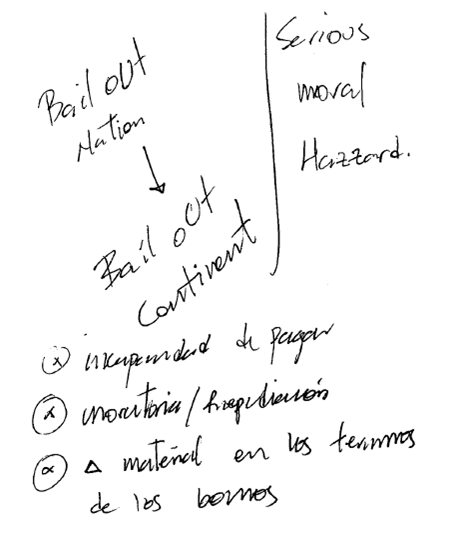 Bail out
Nation
Bail out
Continent
Serious
moral
Hazzard.
incapacidad de pagar
moratoria/repudiación
Δ material en los terminos
de los bonos